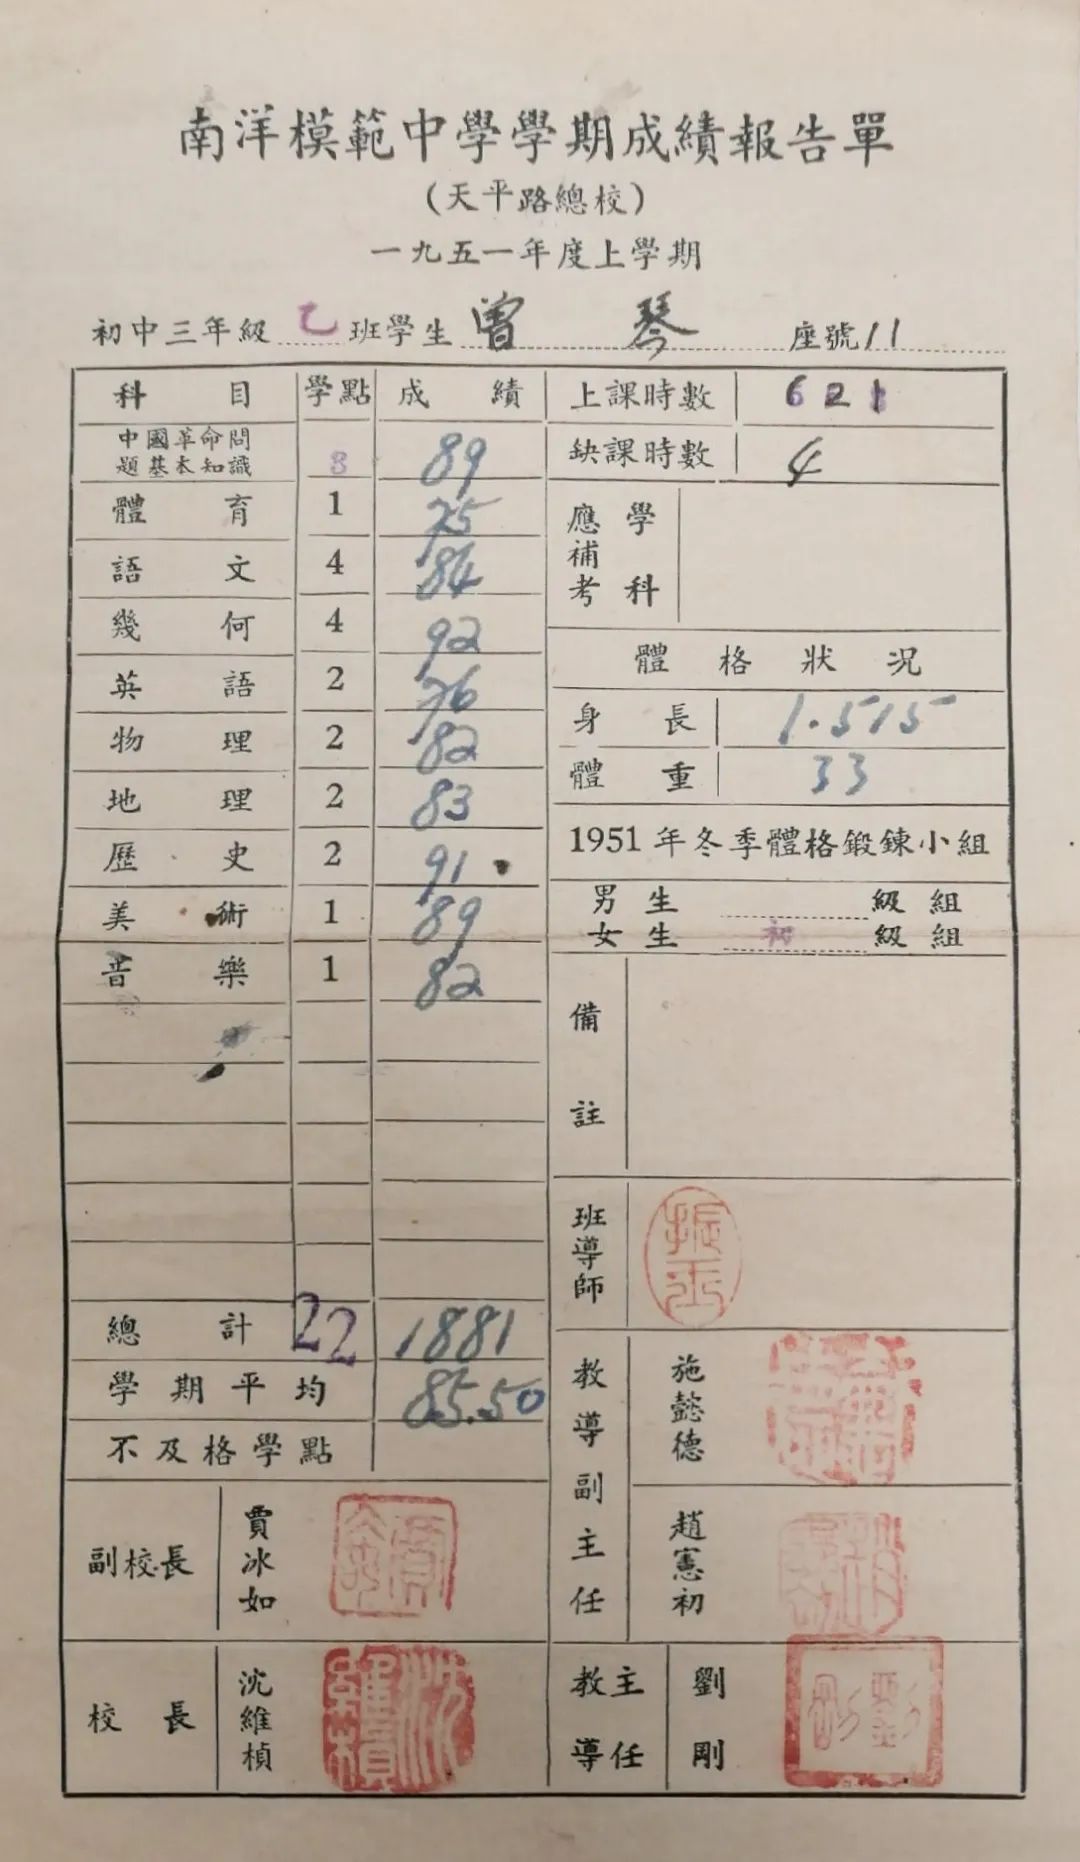 南洋模範中學學期成績報告單
(天平路總校)
一九五一年度上學期
初中三年級 乙 班學生 曾 琴 座號 11
科目 學點 成績
中國革命問題基本知識 3 89
體育 1 75
語文 4 84
幾何 4 92
英語 2 76
物理 2 82
地理 2 83
歷史 2 91
美術 1 89
音樂 1 82
總計 22 1881
學期平均 85.50
不及格學點
副校長 賈冰如
校長 沈維楨
上課時數 621
缺課時數 4
應補考學科
體格狀況
身長 1.515
體重 33
1951年冬季體格鍛鍊小組
男生 級組
女生 初 級組
備註
班導師 振平
教導副主任 施懿德
趙憲初
教導主任 劉剛